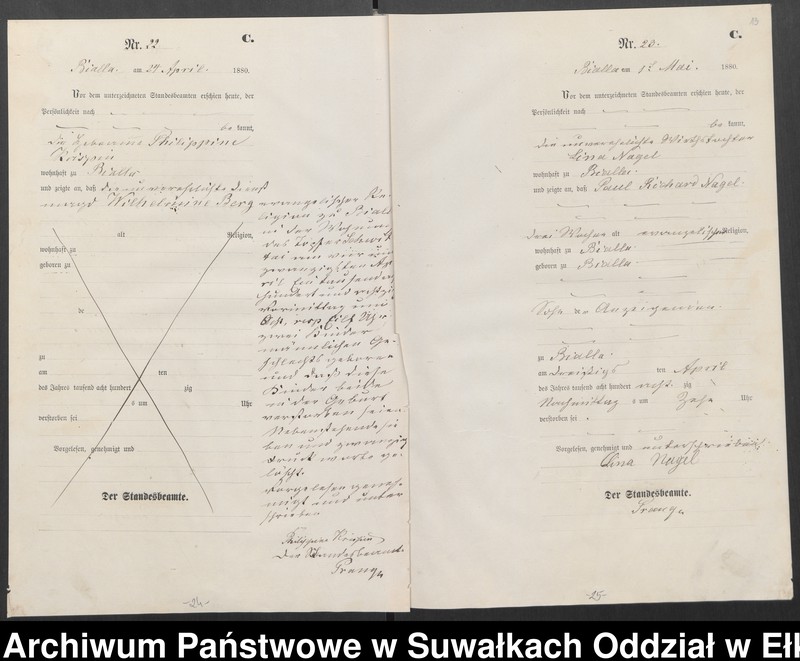 Nr. 22
C.
Bialla. am 24 April. 1880.
Vor dem unterzeichneten Standesbeamten erschien heute, der
Persönlichkeit nach
be kannt,
die Hebamme Philippine
Krispin
wohnhaft zu Bialla
und zeigte an, daß die unverehelichte Dienst
magd Wilhelmine Berg
alt Religion,
wohnhaft zu
geboren zu
de
zu
am ten
des Jahres tausend acht hundert zig
s um Uhr
verstorben sei
Vorgelesen, genehmigt und
Der Standesbeamte.
evangelischer Re-
ligion zu Bialla
in der Wohnung
des
am vier und
zwanzigsten Ap-
ril Eintausend
hundert und achtzig
Vormittag um
acht, resp. eilf Uhr
zwei Kinder
männlichen Ge-
schlechts geboren
und daß diese
Kinder beide
in der Geburt
verstorben seien
Nebenstehende sie
ben und zwanzig
Druckworte ge-
löscht.
Vorgelesen geneh-
migt und unter
schrieben
Philippine Krispin
Der Standesbeamte.
Prang
-24-
19
Nr. 23.
C.
Bialla am 1t Mai. 1880.
Vor dem unterzeichneten Standesbeamten erschien heute, der
Persönlichkeit nach
be kannt,
die unverehelichte Wirthstochter
Lina Nagel
wohnhaft zu Bialla.
und zeigte an, daß Paul Richard Nagel.
drei Wochen alt evangelischer Religion,
wohnhaft zu Bialla
geboren zu Bialla.
Sohn der Anzeigenden.
zu Bialla.
am dreißigs ten April
des Jahres tausend acht hundert acht zig
Nachmittag s um Zehn Uhr
verstorben sei.
Vorgelesen, genehmigt und unterschrieben.
Lina Nagel
Der Standesbeamte.
Prang
-25-
Archiwum Państwowe w Suwałkach Oddział w Ełk